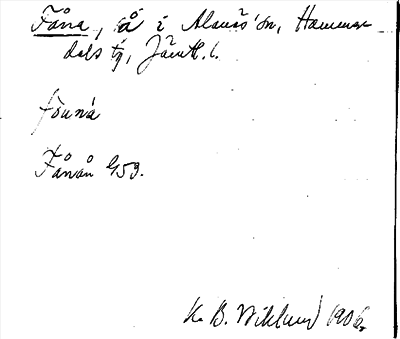 Fåna, å i Alanäs sn, Hammer-
dals tg, Jämtl. l.
fòuna
Fånån G59.
K. B. Wiklund 1906.